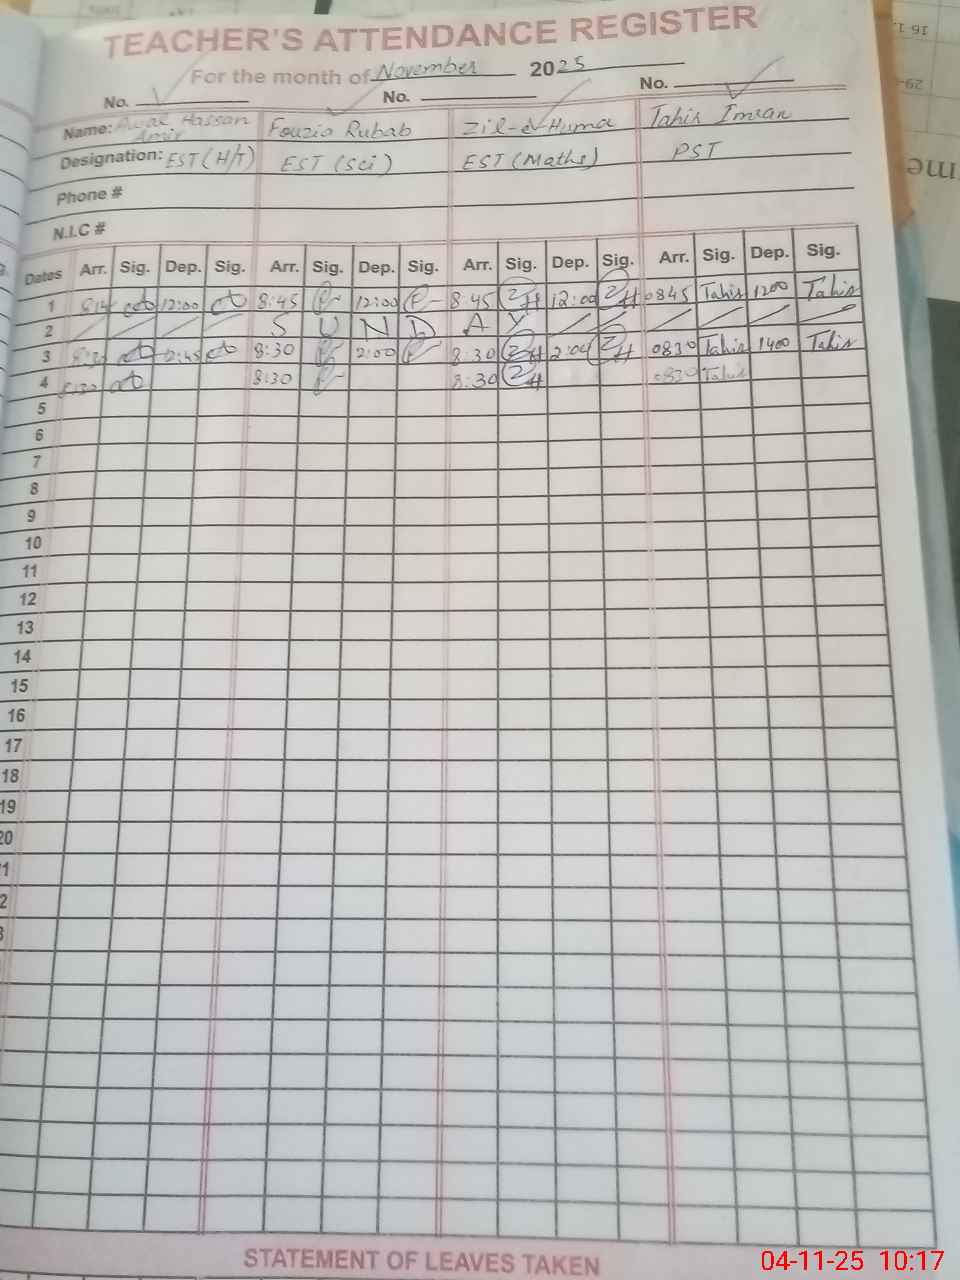 TEACHER'S ATTENDANCE REGISTER
For the month of November 2025
No. No. No.
Name: Hassan Fouzia Rubab Zil-e-Huma Tahir Imran
Amir
Designation: EST (H/T) EST (Sci) EST (Maths) PST
Phone #
N.I.C #
Dates Arr. Sig. Dep. Sig. Arr. Sig. Dep. Sig. Arr. Sig. Dep. Sig. Arr. Sig. Dep. Sig.
1 12:00 8:45 12:00 8:45 ZH 12:00 ZH 0845 Tahir 1200 Tahir
2 S U N D A Y
3 2:45 8:30 2:00 8:30 ZH 2:00 ZH 0830 Tahir 1400 Tahir
4 8:30 8:30 ZH 0830 Tahir
5
6
7
8
9
10
11
12
13
14
15
16
17
18
19
20
1
2
3
STATEMENT OF LEAVES TAKEN
04-11-25 10:17